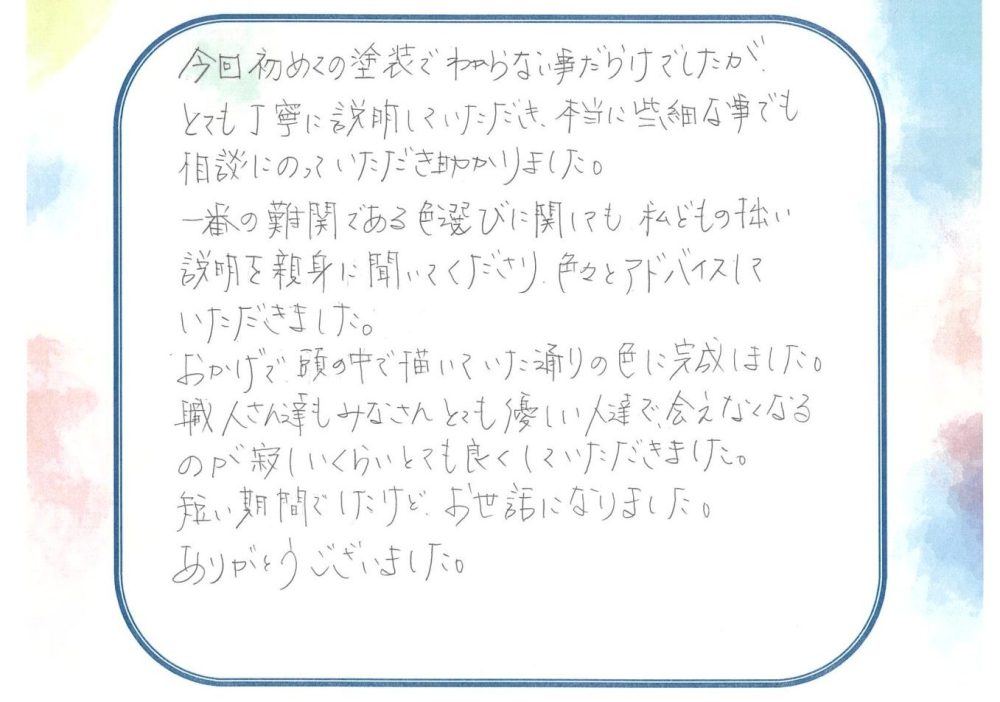 今回初めての塗装でわからない事だらけでしたが、
とても丁寧に説明していただき、本当に些細な事でも
相談にのっていただき助かりました。
一番の難関である色選びに関しても 私どもの拙い
説明を親身に聞いてくださり、色々とアドバイスして
いただきました。
おかげで、頭の中で描いていた通りの色に完成しました。
職人さん達もみなさんとても優しい人達で、会えなくなる
のが寂しいくらいとても良くしていただきました。
短い期間でしたけど、お世話になりました。
ありがとうございました。